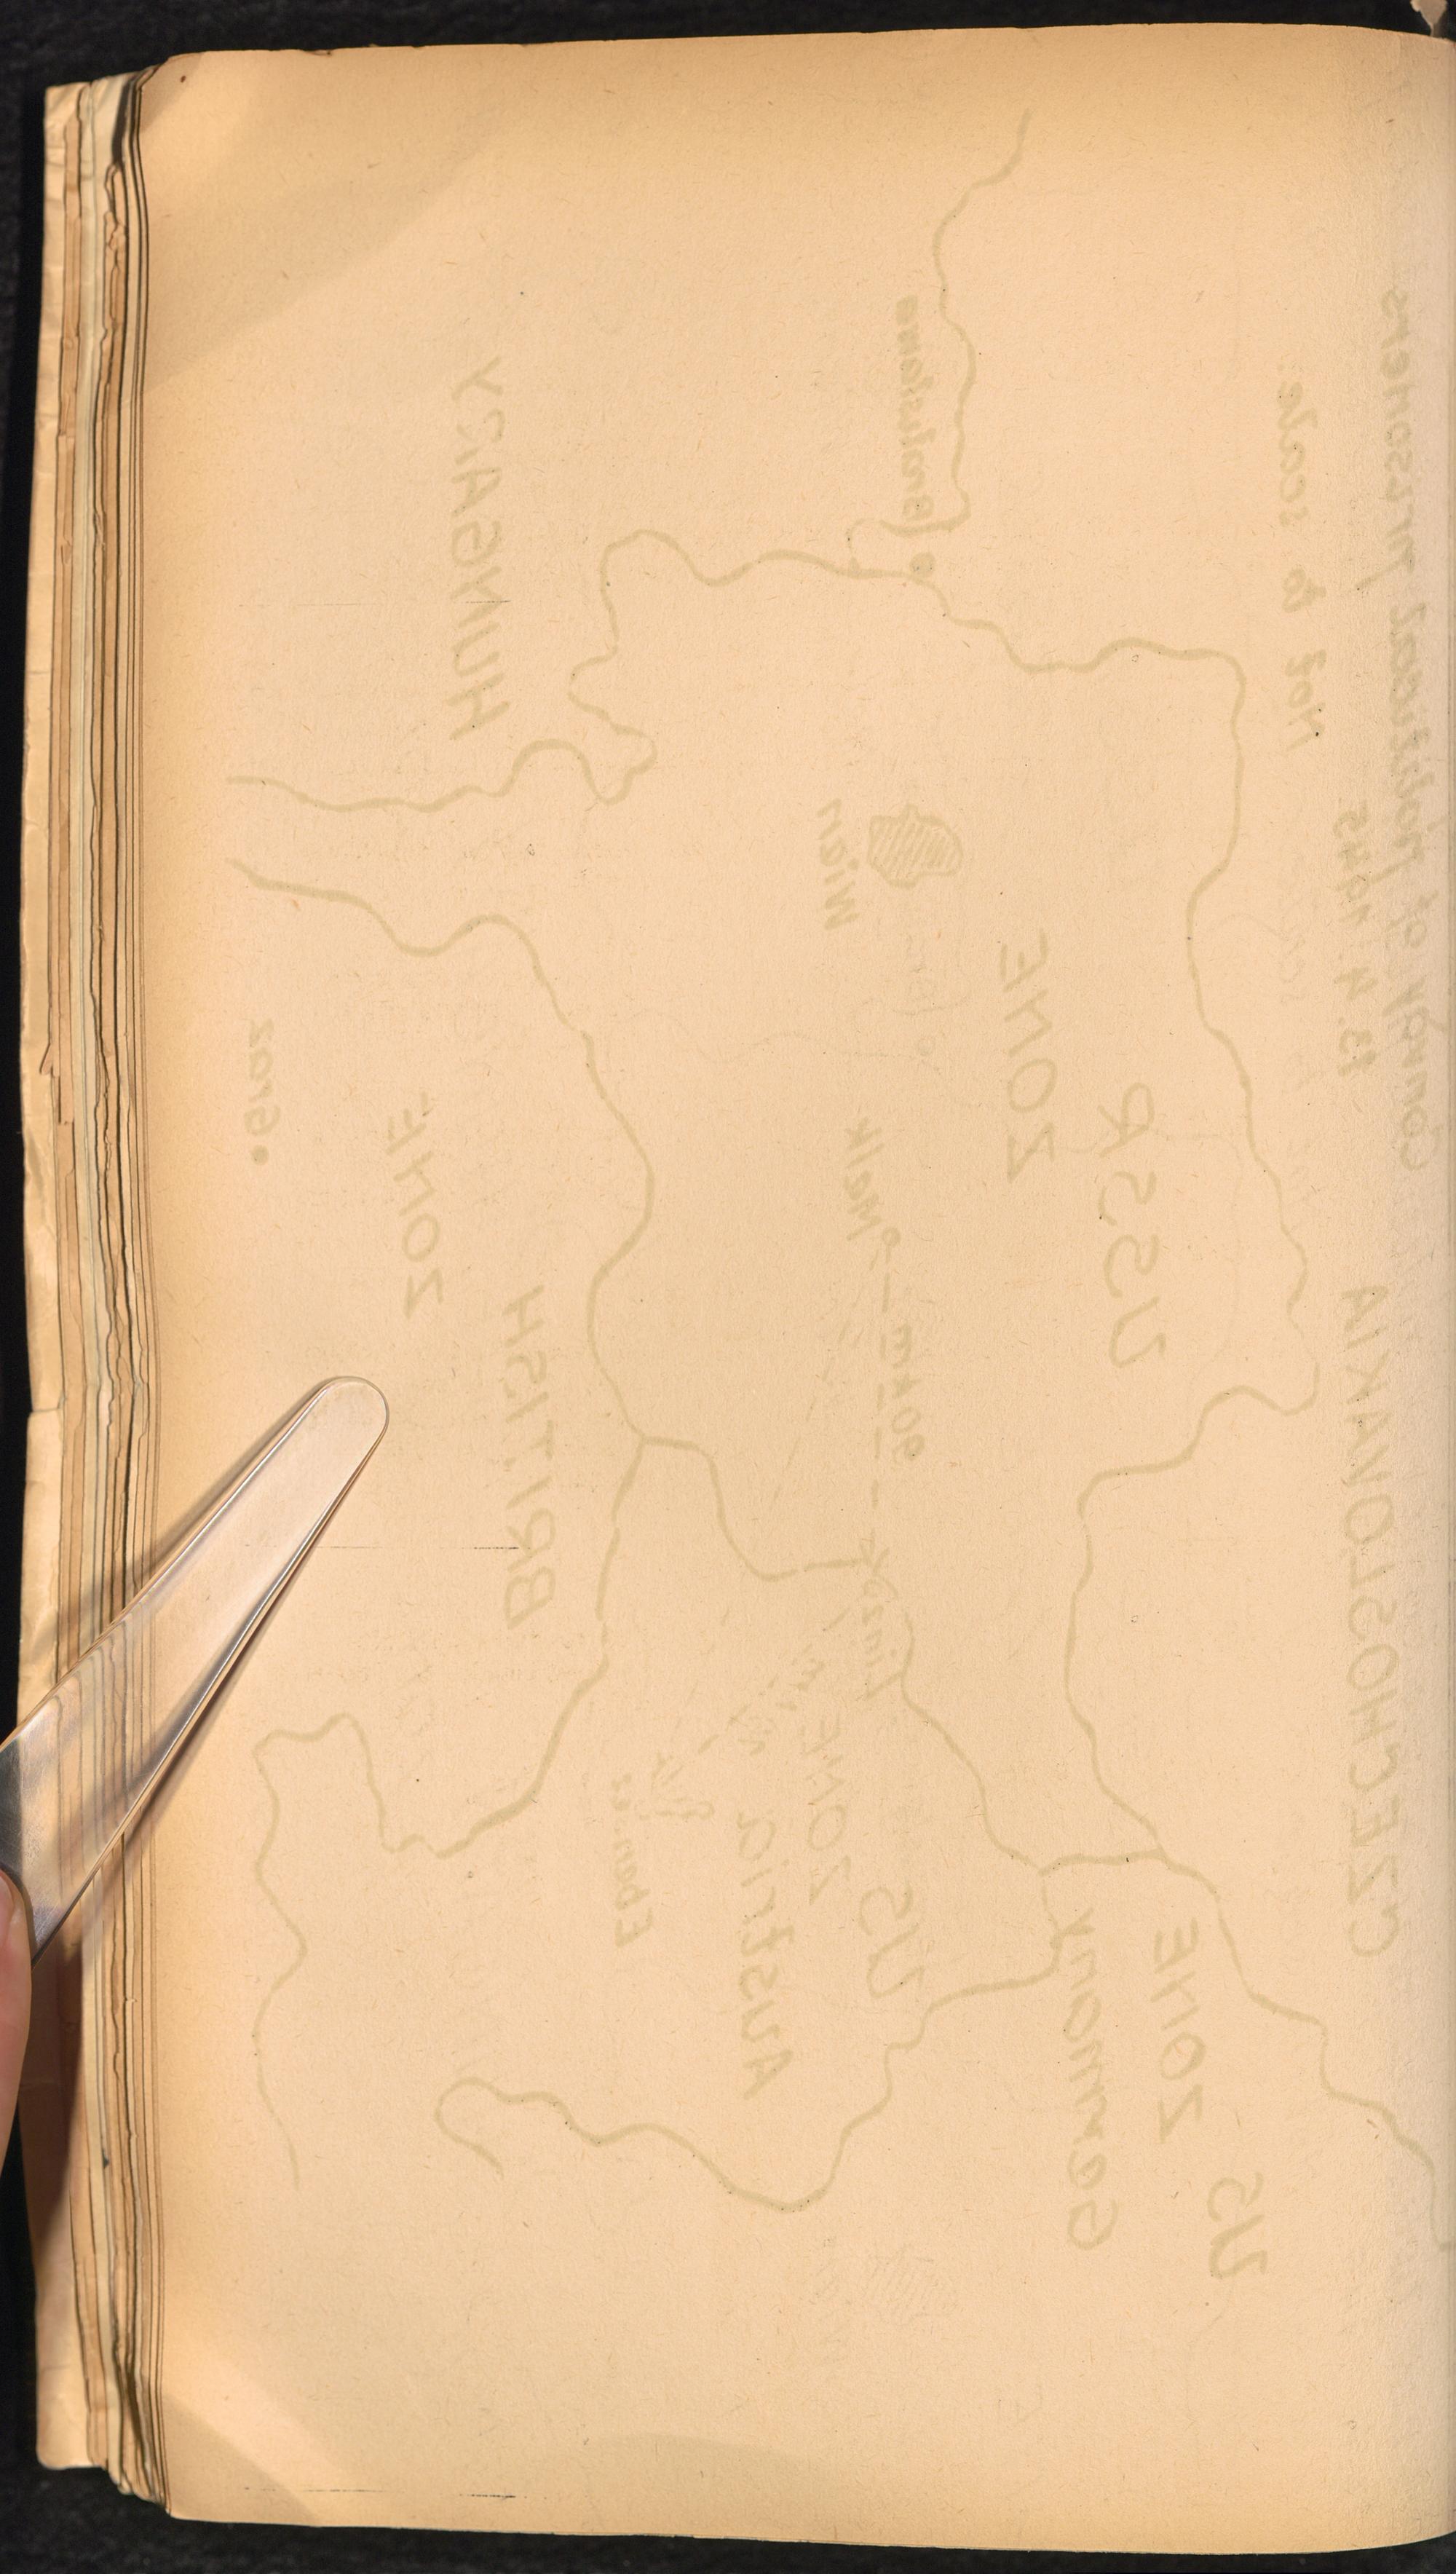 Convoy of political prisoners
13.4.1945
Not to scale.
CZECHOSLOVAKIA
US
ZONE
Germany
USSR
ZONE
Bratislava
Wien
Melk
90 km
Linz
US
ZONE
Austria
Ebensee
BRITISH
ZONE
HUNGARY
Graz